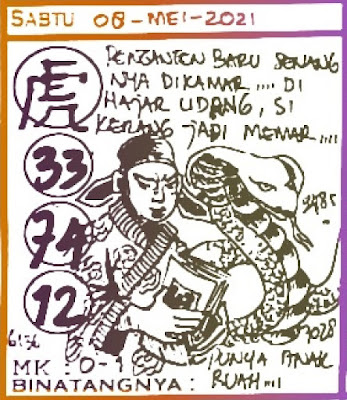 SABTU 08-MEI-2021
虎
PENGANTEN BARU SENANG
NYA DIKAMAR .... DI
HAJAR UDANG, SI
KERANG JADI MEMAR ....
33
74
12
9485
6136
7028
MK : 0-1
PUNYA ANAK
BINATANGNYA : BUAH ...